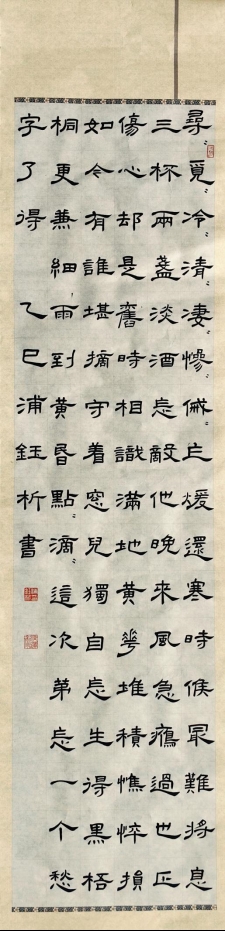 尋〻覓〻冷〻清〻凄〻慘〻慽〻乍煖還寒時候冣難將息
三杯兩盞淡酒怎敵他晚來風急鴈過也正
傷心却是舊時相識滿地黃花堆積憔悴損
如今有誰堪摘守着窓兒獨自怎生得黑梧
桐更兼細雨到黃昏點〻滴〻這次第怎一个愁
字了得 乙巳浦鈺析書